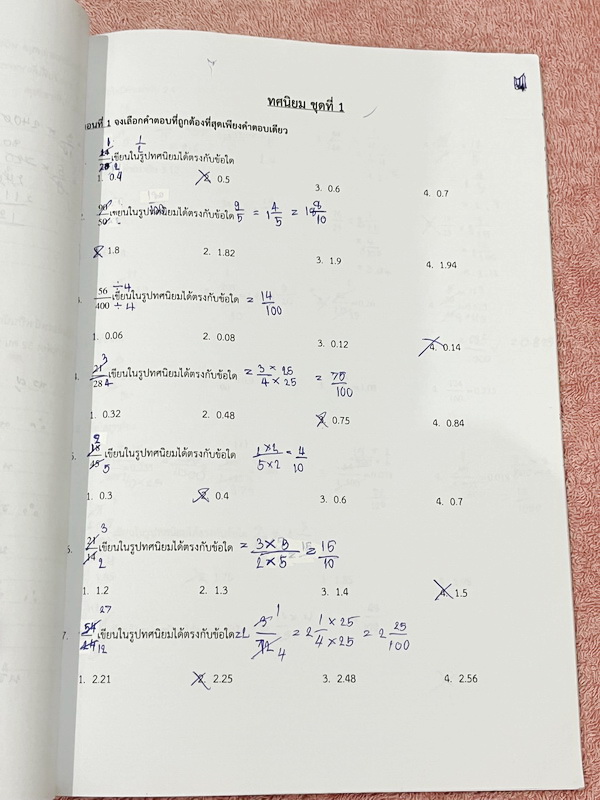 ทศนิยม ชุดที่ 1
ตอนที่ 1 จงเลือกคำตอบที่ถูกต้องที่สุดเพียงคำตอบเดียว
14/28 เขียนในรูปทศนิยมได้ตรงกับข้อใด 1/2
1. 0.4 2. 0.5 3. 0.6 4. 0.7
90/50 เขียนในรูปทศนิยมได้ตรงกับข้อใด 9/5 = 1 4/5 = 1 8/10
1. 1.8 2. 1.82 3. 1.9 4. 1.94
56/400 ÷4 ÷4 เขียนในรูปทศนิยมได้ตรงกับข้อใด = 14/100
1. 0.06 2. 0.08 3. 0.12 4. 0.14
21/28 3 4 เขียนในรูปทศนิยมได้ตรงกับข้อใด = 3 × 25/4 × 25 = 75/100
1. 0.32 2. 0.48 3. 0.75 4. 0.84
18/45 2 5 เขียนในรูปทศนิยมได้ตรงกับข้อใด ×2/5×2 = 4/10
1. 0.3 2. 0.4 3. 0.6 4. 0.7
21/14 3 2 เขียนในรูปทศนิยมได้ตรงกับข้อใด = 3 × 5/2 × 5 = 15/10
1. 1.2 2. 1.3 3. 1.4 4. 1.5
7. 54/24 27 12 เขียนในรูปทศนิยมได้ตรงกับข้อใด = 2 3/12 1 4 = 2 1 × 25/4 × 25 = 2 25/100
1. 2.21 2. 2.25 3. 2.48 4. 2.56